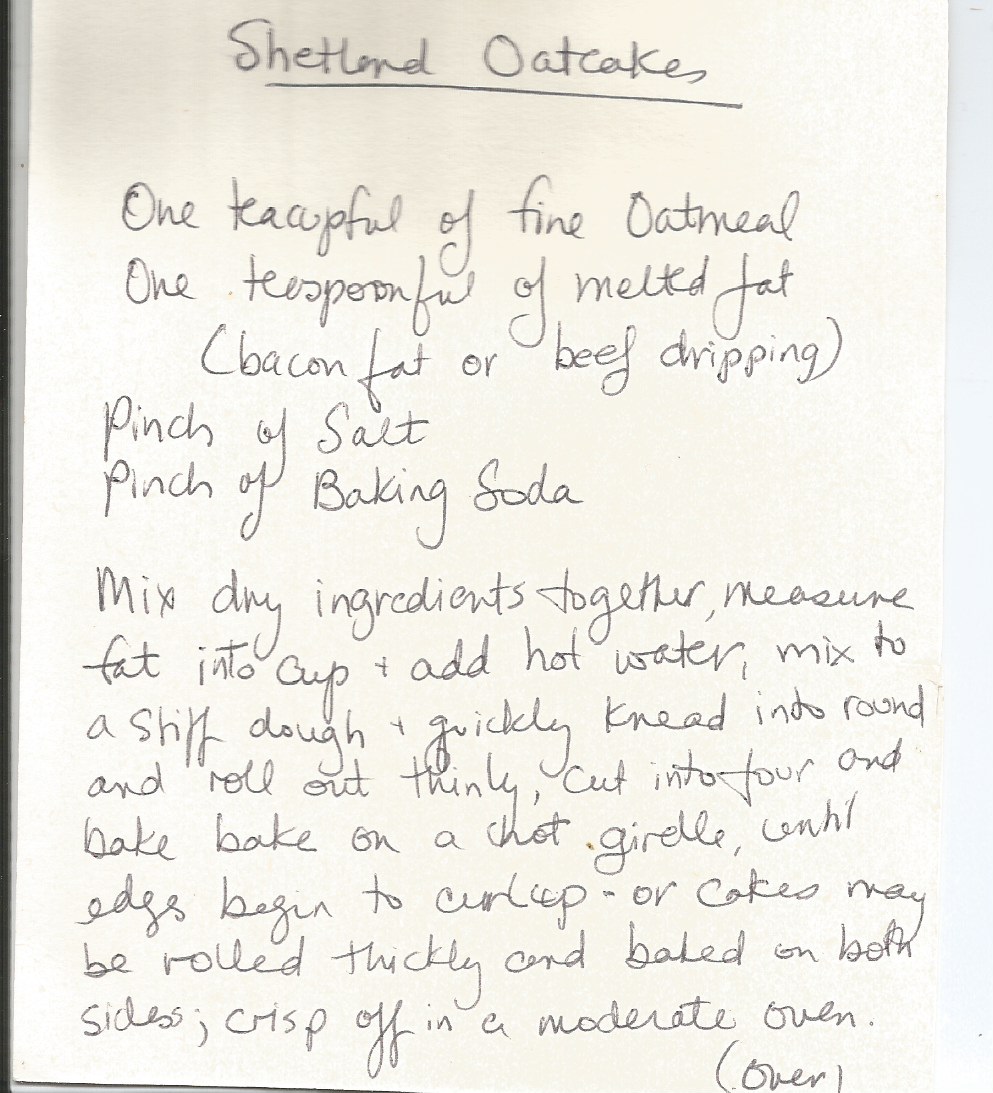 Shetland Oatcakes
One teacupful of fine Oatmeal
One teaspoonful of melted fat
(bacon fat or beef dripping)
Pinch of Salt
Pinch of Baking Soda
Mix dry ingredients together, measure
fat into cup + add hot water, mix to
a stiff dough + quickly knead into round
and roll out thinly, cut into four and
bake bake on a hot girdle, until
edges begin to curl up - or cakes may
be rolled thickly and baked on both
sides; crisp off in a moderate oven.
(over)